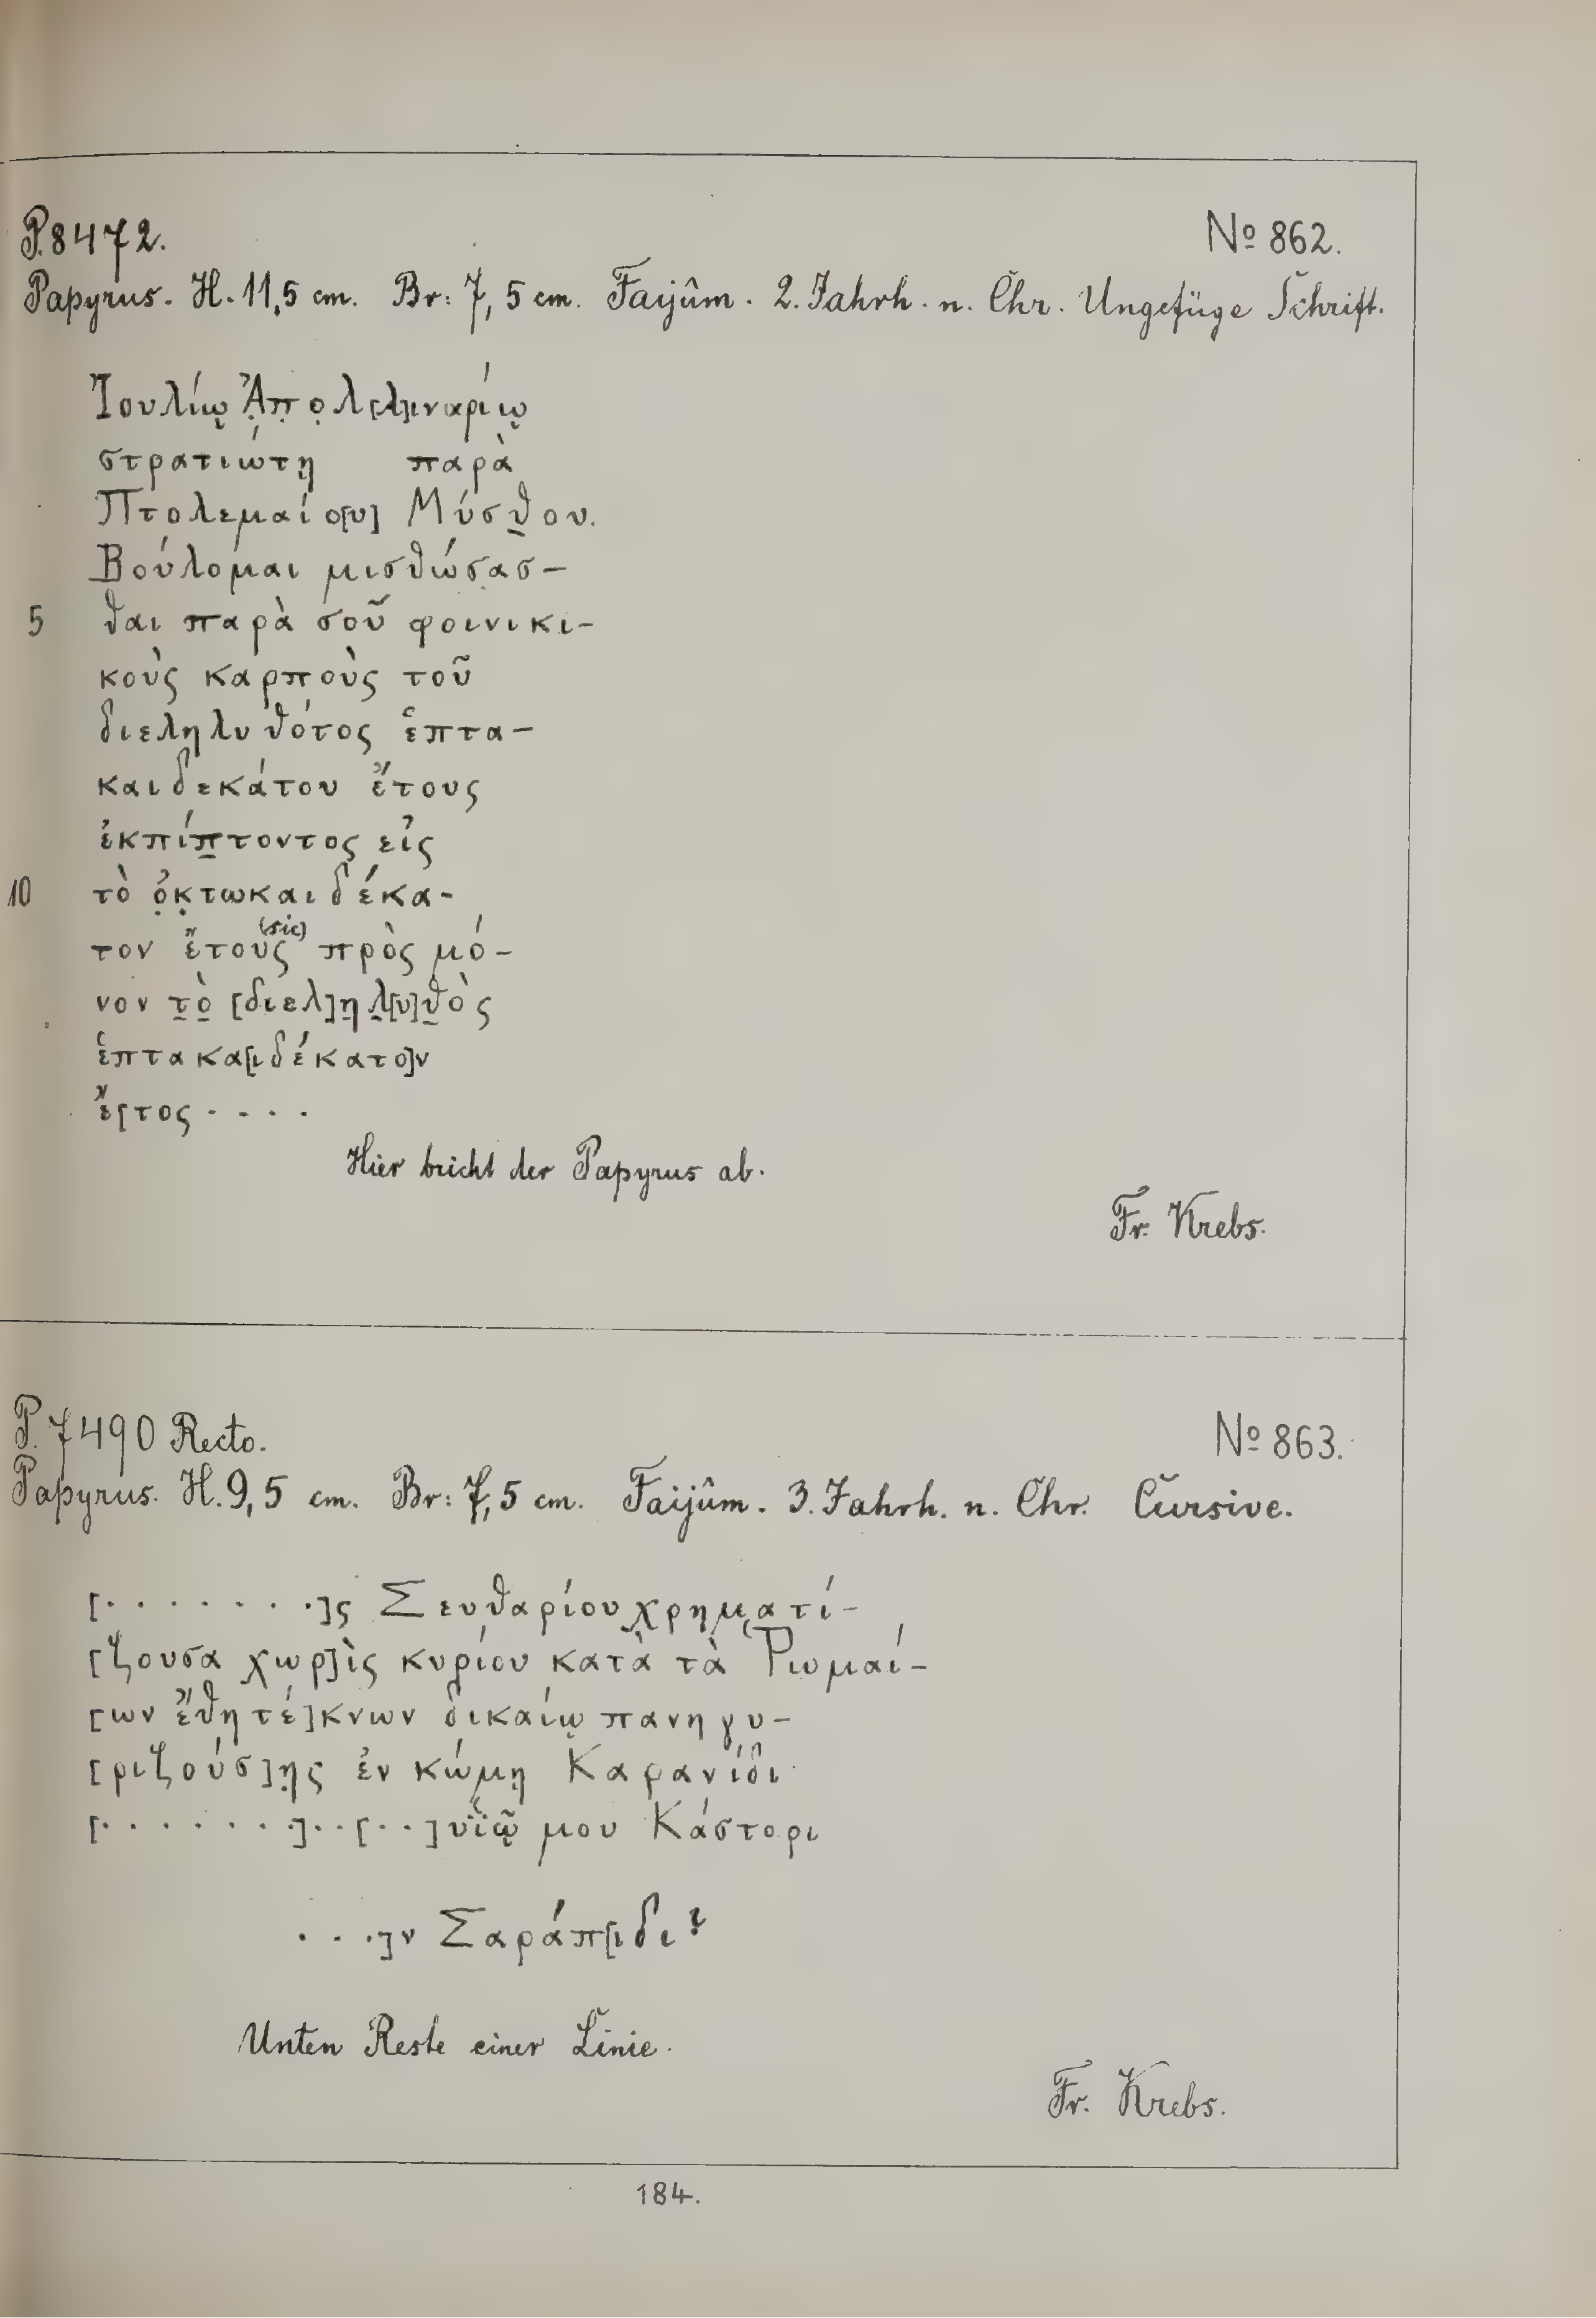 P. 8472.
Nº 862.
Papyrus. H. 11,5 cm. Br: 7,5 cm. Faijûm. 2. Jahrh. n. Chr. Ungefüge Schrift.
Ἰουλίῳ Ἀ̣π̣ο̣λ[λ]ιναρίῳ
στρατιώτῃ παρὰ
Πτολεμαίο[υ] Μύσθ̣ου.
Βούλομαι μισθώσασ-
5 θαι παρὰ σοῦ φοινικι-
κοὺς καρποὺς τοῦ
διεληλυθότος ἑπτα-
καιδεκάτου ἔτους
ἐκπίπ̣τοντος εἰς
10 τὸ ὀ̣κ̣τωκαιδέκα-
τον ἔτους (sic) πρὸς μό-
νον τ̣ὸ̣ [διελ]η̣λ̣[υ]θ̣ὸς
ἑπτακα[ιδέκατο]ν
ἔ[τος . . . .
Hier bricht der Papyrus ab.
Fr. Krebs.
P. 7490 Recto.
Nº 863.
Papyrus. H. 9,5 cm. Br: 7,5 cm. Faijûm. 3. Jahrh. n. Chr. Cursive.
[. . . . . . . .]ς Σευθαρίου χρημ̣ατί-
[ζουσα χωρ]ὶς κυρίου κατὰ τὰ Ῥωμαί-
[ων ἔθη τέ]κνων δικαίῳ πανηγυ-
[ριζούσ]ης ἐν κώμῃ Καρανίδι
[. . . . . . . .]. .[. .]υἱῷ μου Κάστορι
. . .]ν Σαράπ[ιδι?
Unten Reste einer Linie.
Fr. Krebs.
184.